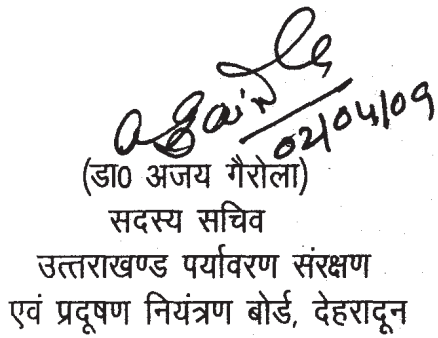 02/04/09
(डा0 अजय गैरोला)
सदस्य सचिव
उत्तराखण्ड पर्यावरण संरक्षण
एवं प्रदूषण नियंत्रण बोर्ड, देहरादून